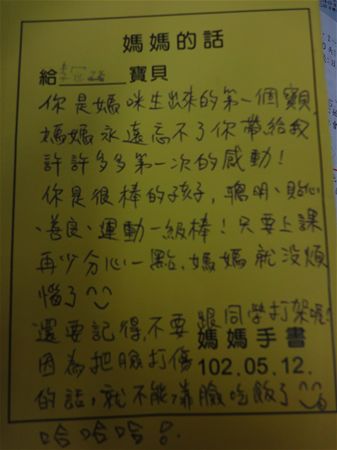 媽媽的話
給 寶貝
你是媽咪生出來的第一個寶貝,
媽媽永遠忘不了你帶給我
許許多多第一次的感動!
你是很棒的孩子,聰明、貼心
、善良、運動一級棒!只要上課
再少分心一點,媽媽就沒煩
惱了^^
還要記得,不要跟同學打架喔!
媽媽手書
因為把臉打傷
102.05.12.
的話,就不能靠臉吃飯了^^
哈哈哈!